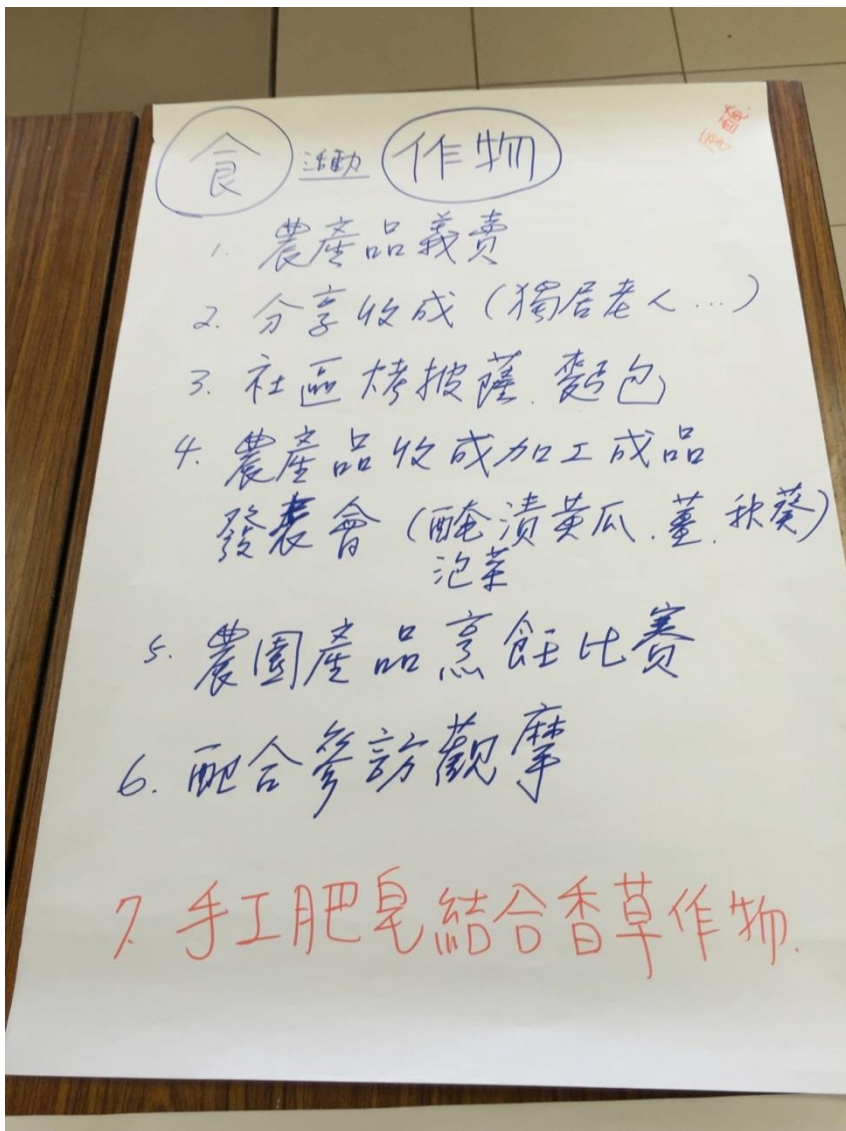 食 活動 作物
1. 農產品義賣
2. 分享收成(獨居老人...)
3. 社區烤披薩.麵包
4. 農產品收成加工成品
發表會(醃漬黃瓜.薑.秋葵)
泡菜
5. 農園產品烹飪比賽
6. 配合參訪觀摩
7. 手工肥皂結合香草作物.